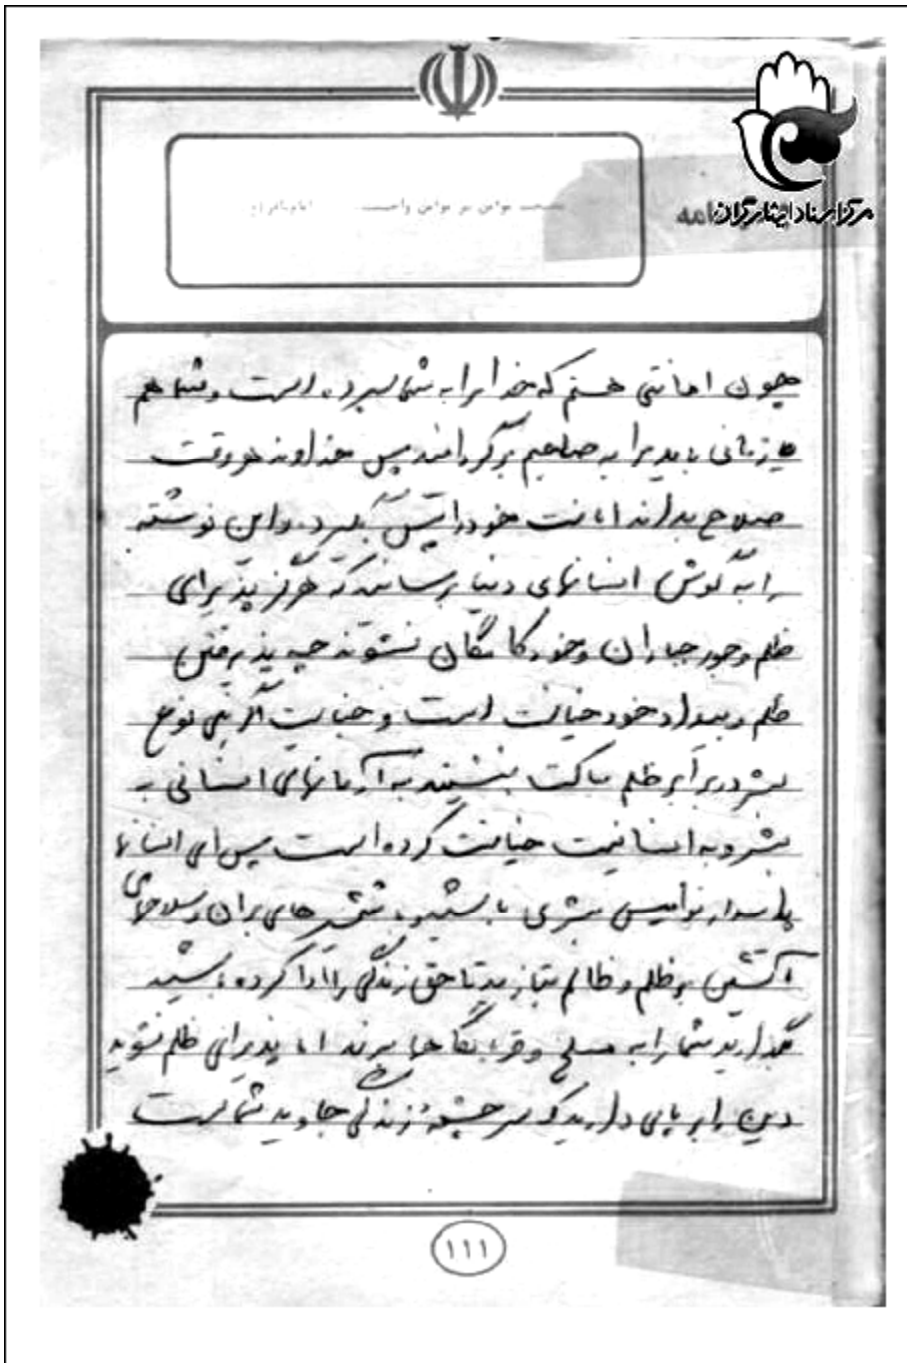 مرکز اسناد ایثارگران
نامه
چون امانتی هستم که خدا مرا به شما سپرده است و شما هم
زمانی باید مرا به صاحبم برگردانید پس خداوند هر وقت
صلاح بداند امانت خود را پس بگیرد. و این نوشته
را به گوش انسانهای دنیا برسانید که هرگز پذیرای
ظلم و جور جباران و خودکامگان نشوند چه پذیرفتن
ظلم و بیداد خود خیانت است و جنایت اگر بنی نوع
بشر در برابر ظلم ساکت بنشیند به آرمانهای انسانی
بشر و به انسانیت خیانت کرده است پس ای انسانها
پاسدار نوامیس بشری باشید و با شمشیرهای بران و سلاحهای
آتشین بر ظلم و ظالم بتازید تا حق زندگی را ادا کرده باشید
بگذارید شما را به مسلخ و قربانگاهها ببرند اما پذیرای ظلم نشوید
دین را بر پای دارید که سرچشمهٔ زندگی جاوید شماست
۱۱۱